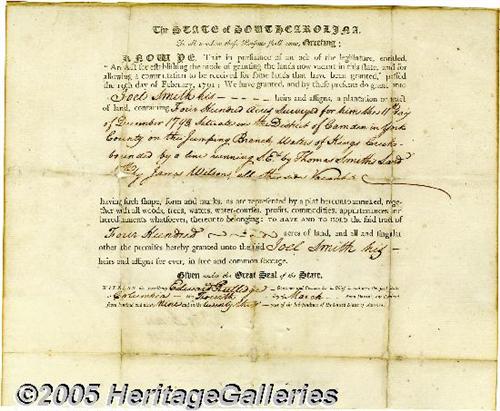 The STATE of SOUTH CAROLINA.
To all to whom these Presents shall come, Greeting:
KNOW YE, That in pursuance of an act of the legislature, entitled,
"An Act for establishing the mode of granting the lands now vacant in this state, and for
allowing a commutation to be received for some lands that have been granted," passed
the 19th day of February, 1791; We have granted, and by these presents do grant unto
Joel Smith his heirs and assigns, a plantation or tract
of land, containing Four Hundred acres Surveyed for him the 11th Day
of December 1793 Situate in the District of Camden in York
County on the Jumping Branch Waters of Kings Creek
bounded by a line running S.E. by Thomas Smiths Land
by James Wilson, all other sides Vacant
having such shape, form and marks, as are represented by a plat hereunto annexed, together
with all woods, trees, waters, water-courses, profits, commodities, appurtenances and here-
ditaments whatsoever, thereunto belonging: TO HAVE AND TO HOLD the said tract of
Four Hundred acres of land, and all and singular
other the premises hereby granted unto the said Joel Smith his
heirs and assigns for ever, in free and common soccage.
Given under the Great Seal of the State.
WITNESS Edward Rutledge Governor and Commander in Chief
Columbia Fourth March
Nine and in the twenty third year of the Independence of the United States of America.
©2005 HeritageGalleries